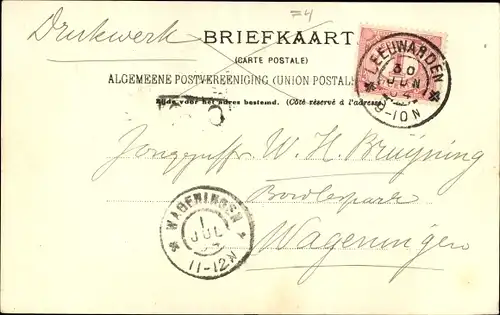 =4
Drukwerk
BRIEFKAART
(CARTE POSTALE)
ALGEMEENE POSTVEREENIGING (UNION POSTALE
Zijde voor het adres bestemd. (Côté réservé à l'adresse
LEEUWARDEN
30
JUN
04
9-10N
Jongejuffr. W. H. Bruijning
Bowlespark
Wageningen
WAGENINGEN
1
JUL
11-12N